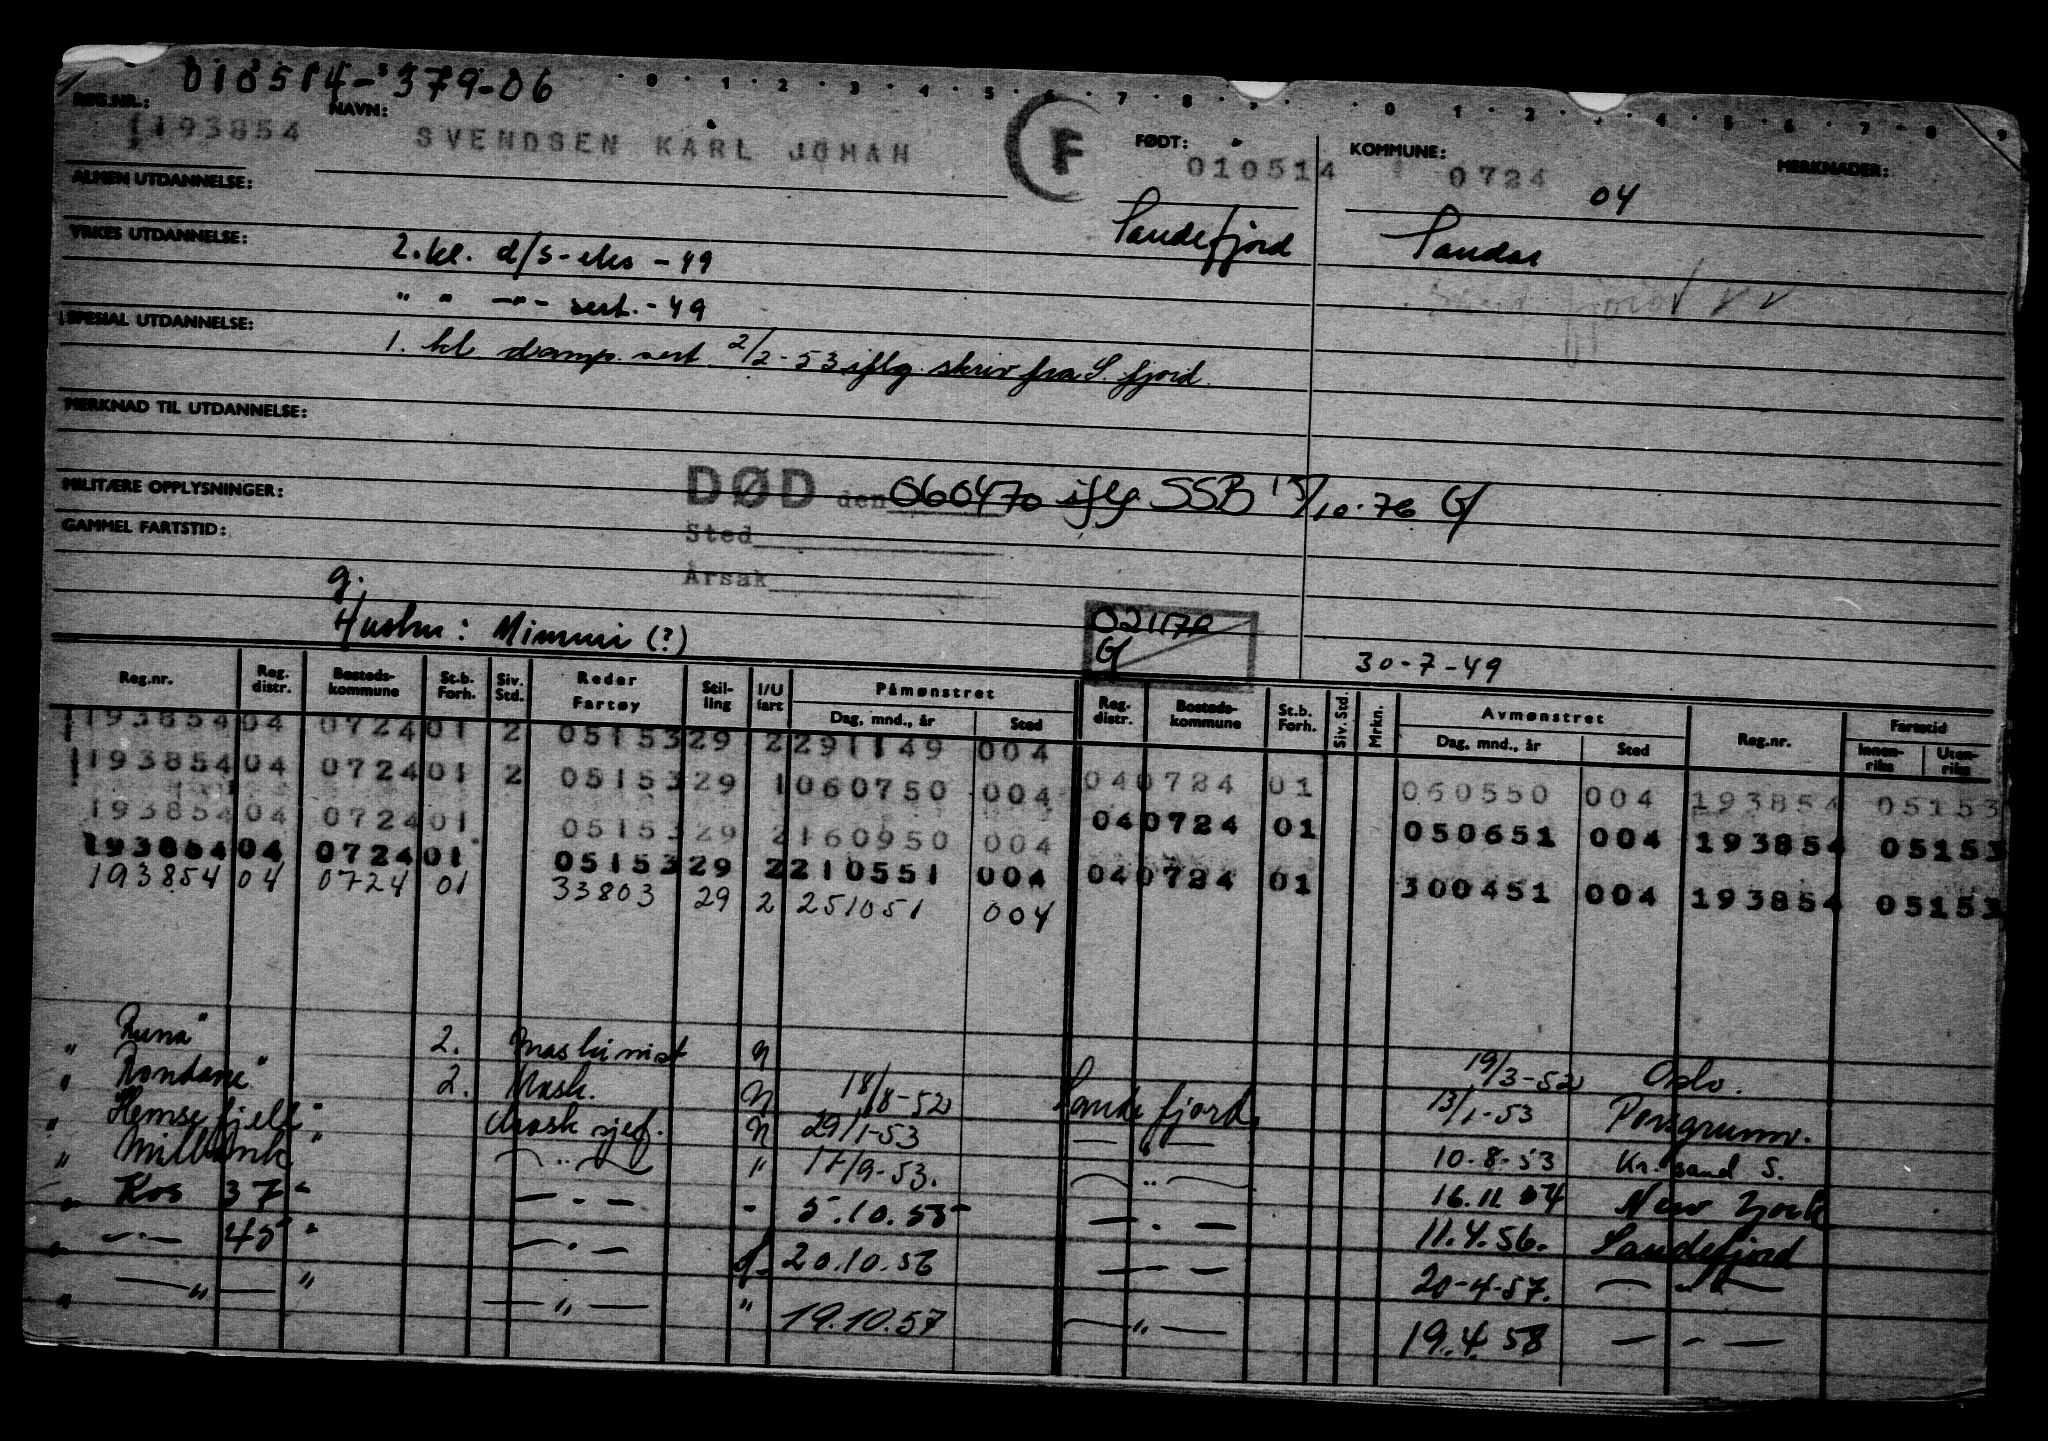 010514-379-06
0 1 2 3 4 5 6 7 8 9 0 1 2 4 5 6 7 8 9
REG.NR.: NAVN: FØDT: KOMMUNE: MERKNADER:
193854 SVENDSEN KARL JOHAN F 010514 0724 04
ALMEN UTDANNELSE: Sandefjord Sandar
YRKES UTDANNELSE: 2. kl. d/s-eks - 49
" " -"- sert. - 49
SPESIAL UTDANNELSE: 1. kl. damp. sert. 2/2-53 iflg. skriv fra S. fjord.
MERKNAD TIL UTDANNELSE:
MILITÆRE OPPLYSNINGER: DØD den 060470 iflg SSB 15/10-76 G/
Sted
GAMMEL FARTSTID:
Årsak
g.
Hustru: Mimmi (?) 021178 G/ 30-7-49
Reg.nr. Reg. distr. Bosteds-kommune St.b. Forh. Siv. Std. Reder Fartøy Stil-ling I/U fart Påmønstret Dag, mnd., år Sted Reg. distr. Bosteds-kommune St.b. Forh. Siv. Std. Mrkn. Avmønstret Dag, mnd., år Sted Reg.nr. Fartstid Innen-riks Uten-riks
193854 04 0724 01 2 05153 29 2 291149 004
193854 04 0724 01 2 05153 29 1 060750 004 04 0724 01 060550 004 193854 05153
193854 04 0724 01 05153 29 2 160950 004 04 0724 01 050651 004 193854 05153
193854 04 0724 01 05153 29 2 210551 004 04 0724 01 300451 004 193854 05153
193854 04 0724 01 33803 29 2 251051 004
" Runa" 2. Maskinist n 19/3-52 Oslo.
" Rondane" 2. Mask. n 18/8-52 Sandefjord. 13/1-53 Porsgrunn.
" Hemsefjell" Mask sjef. n 29/1-53 — " — 10-8-53 Kr. sand S.
" Millbank" — " — " 17/9-53. — " — 16.11.54 New York
" Kos 37" — " — - 5.10.55 — " — 11.4.56. Sandefjord
" — " — 45" — " — f. 20.10.56 — " — 20-4-57. — " —
" — " — " — " — " 19.10.57 — " — 19.4.58 — " —